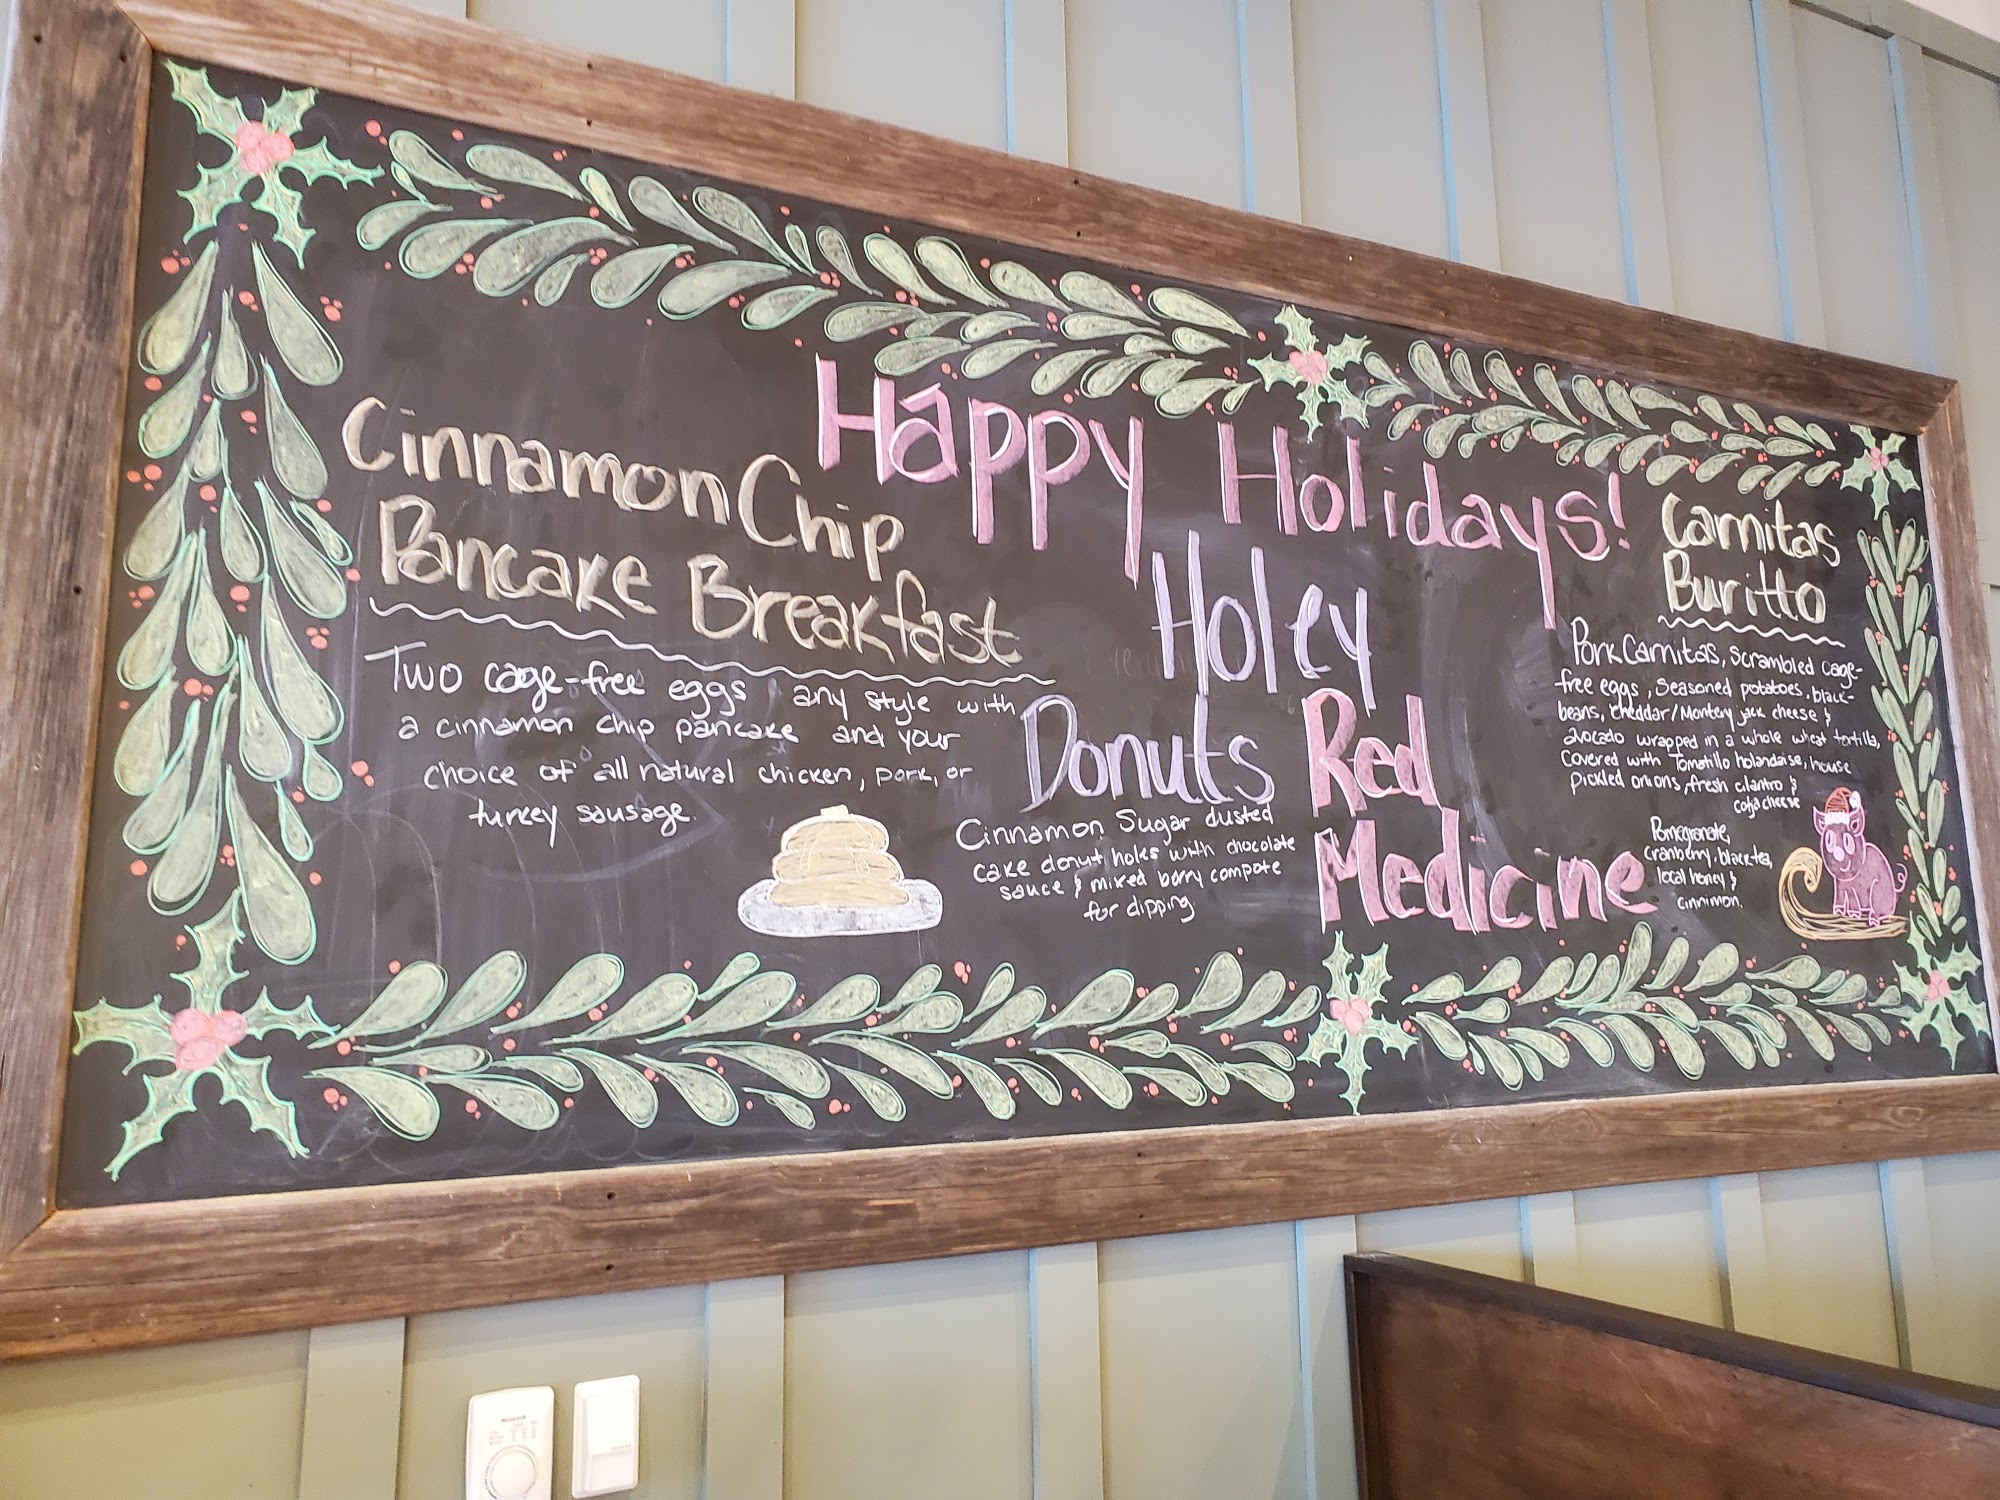 Happy Holidays!
Cinnamon Chip
Pancake Breakfast
Two cage-free eggs any style with
a cinnamon chip pancake and your
choice of all natural chicken, pork, or
turkey sausage.
Holey
Donuts
Cinnamon Sugar dusted
cake donut holes with chocolate
sauce & mixed berry compote
for dipping.
Red
Medicine
Pomegranate,
cranberry, black tea,
local honey &
cinnimon.
Carnitas
Buritto
Pork Carnitas, Scrambled cage-
free eggs, Seasoned potatoes, black-
beans, cheddar/Montery jack cheese &
avocado wrapped in a whole wheat tortilla,
Covered with Tomatillo holandaise, house
pickled onions, fresh cilantro &
cotija cheese
Honeywell